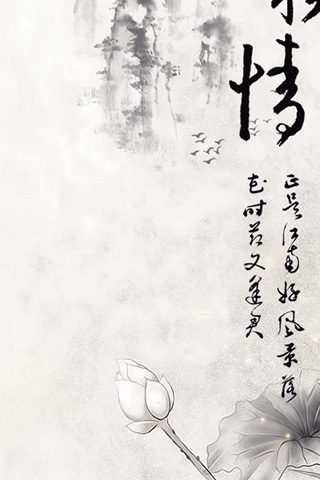 情
正是江南好风景落
花时节又逢君